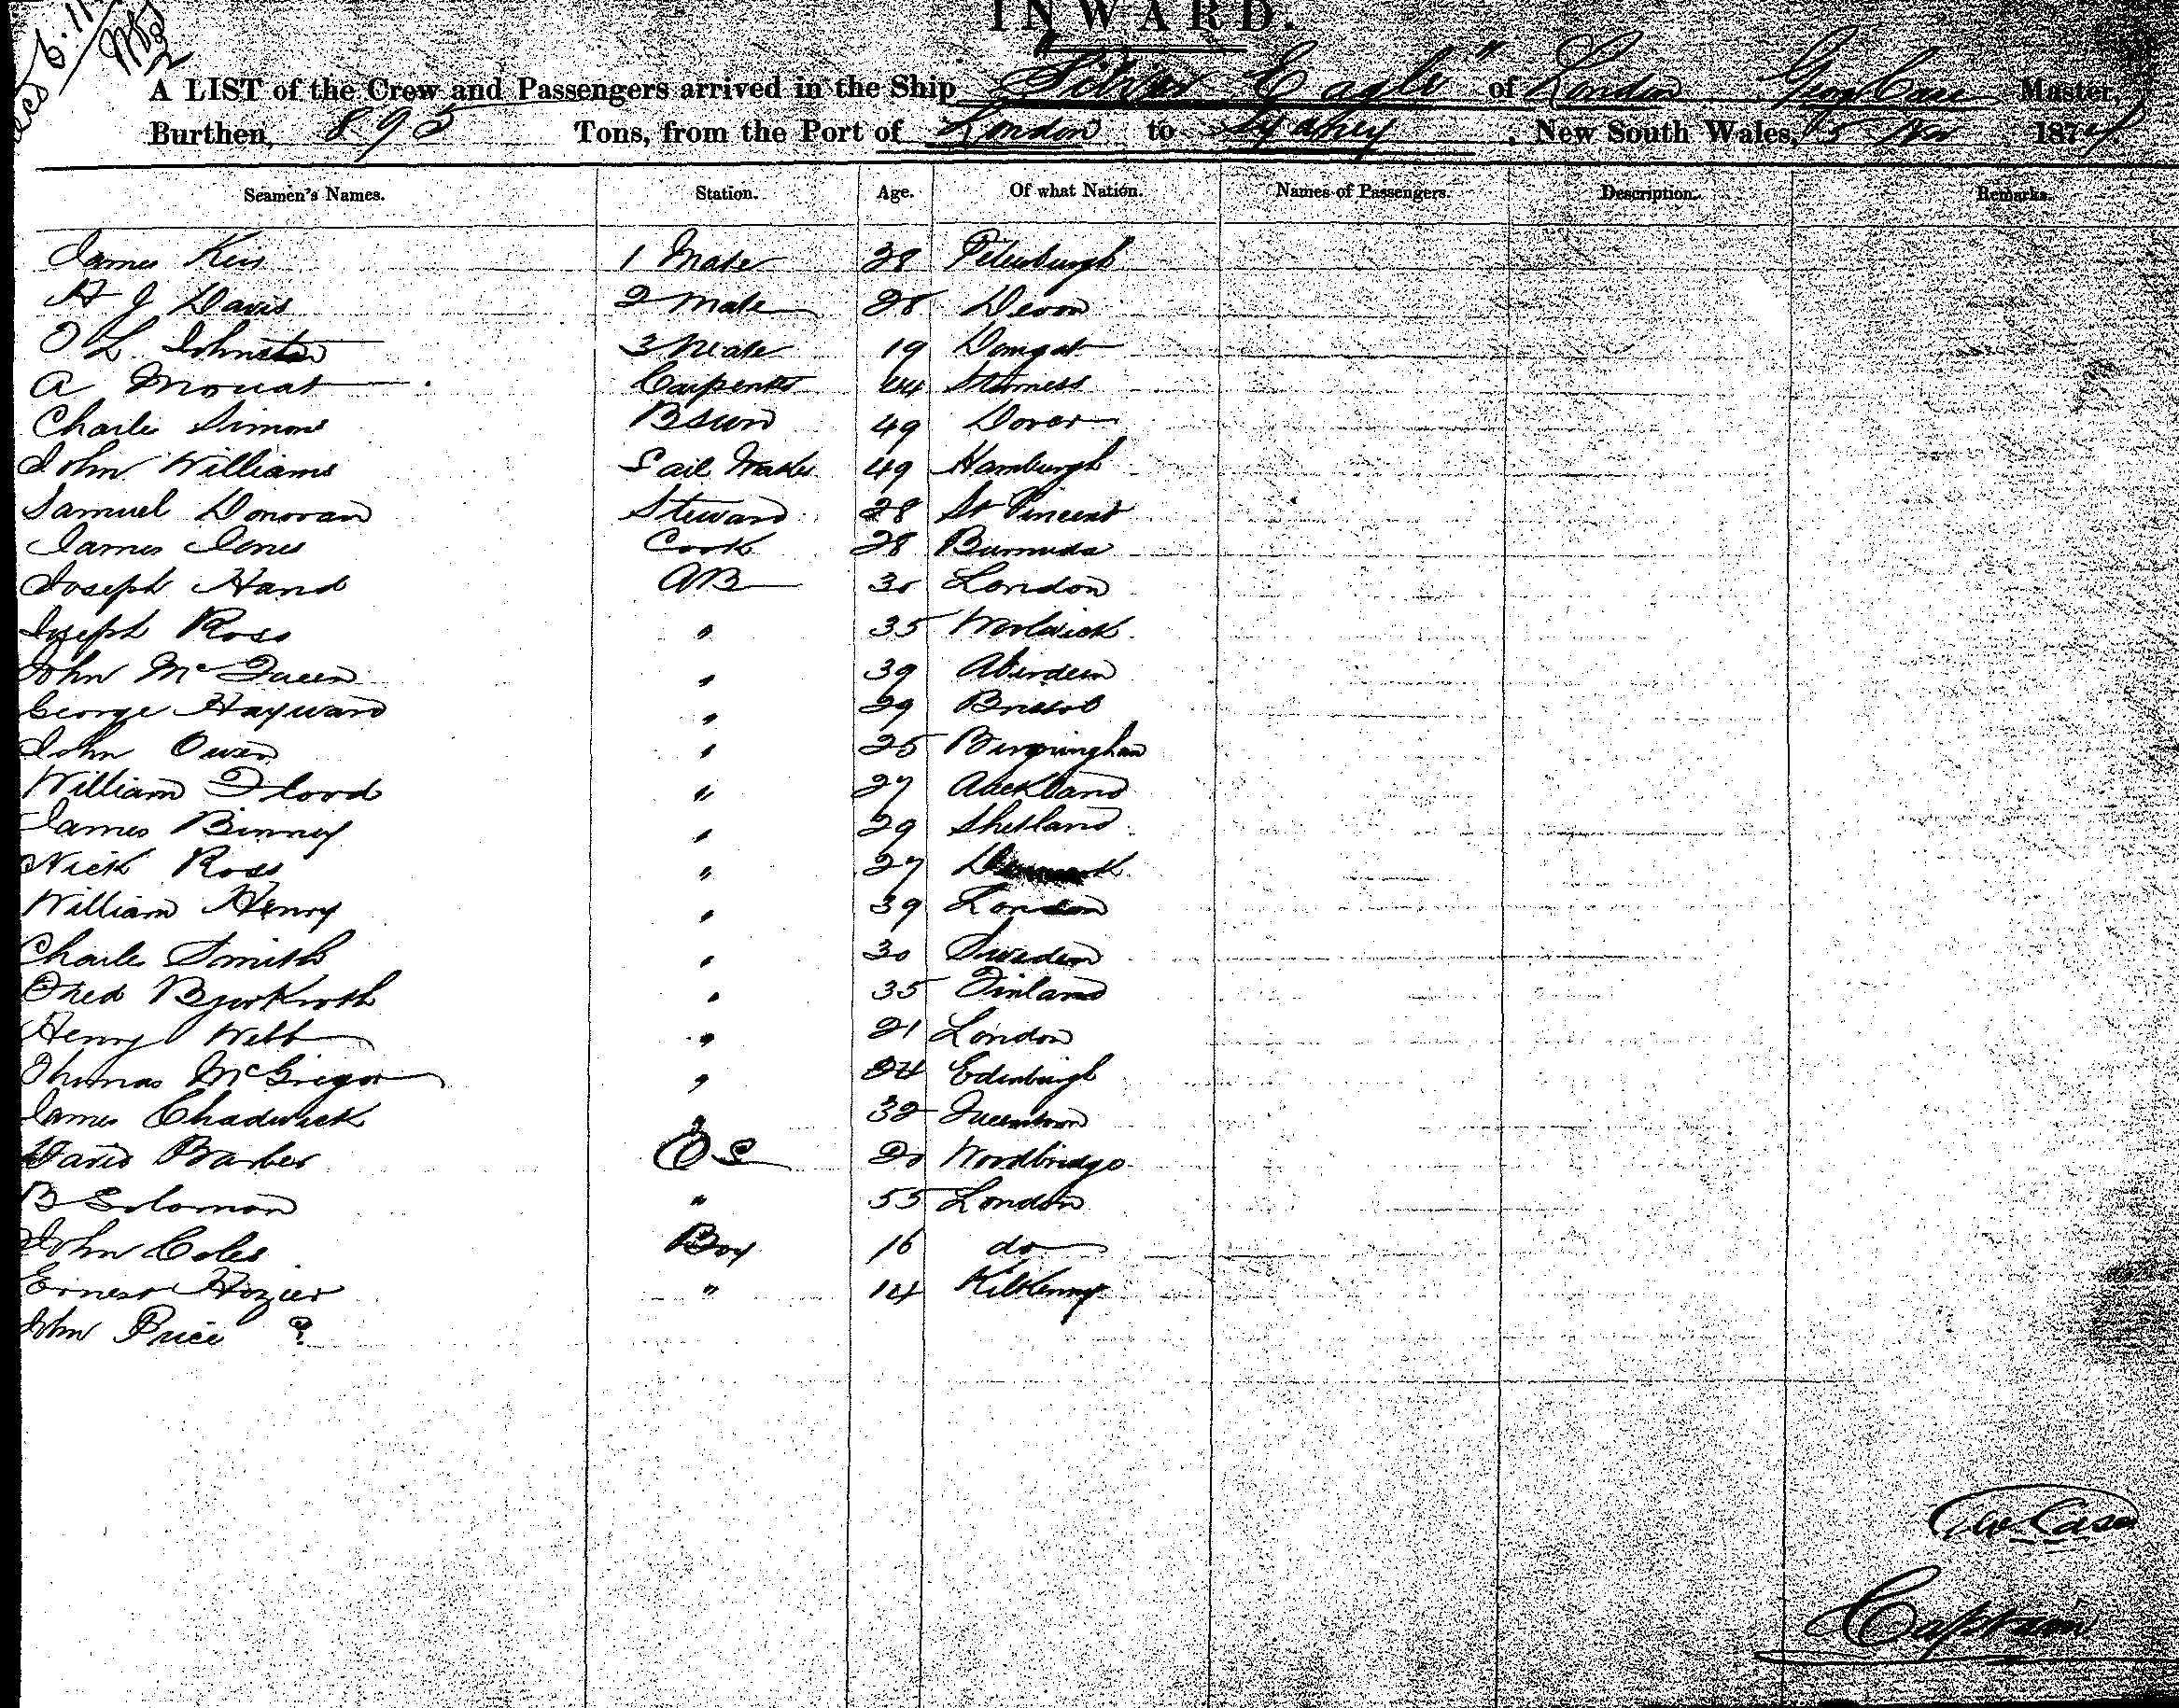 INWARD.
A LIST of the Crew and Passengers arrived in the Ship "Silver Eagle" of London Geo Case Master,
Burthen, 895 Tons, from the Port of London to Sydney, New South Wales, 5 Nov 1874
Seamen's Names. Station. Age. Of what Nation. Names of Passengers. Description. Remarks.
James 1 Mate 38 Peterburgh
H J Davis 2 Mate 28 Devon
O L Johnston 3 Mate 19
A Mouat Carpenter 44 Stromness
Charles Simons Bsun 49 Dover
John Williams Sail Maker 49 Hamburgh
Samuel Donovan Steward 28 St Vincent
James Jones Cook 28 Burmuda
Joseph Hand AB 30 London
Joseph Ross " 35 Woolwich
John McQueen " 39 Aberdeen
George Hayward " 29 Bristol
John Owen " 25 Birmingham
William Flood " 27 Auckland
James Binney " 29 Shetland
Nick Ross " 27 Denmark
William Henry " 39 London
Charles Smith " 30 Sweden
Fred Bjorkroth " 35 Finland
Henry Webb " 21 London
Thomas McGregor " 24 Edinburgh
James Chadwick " 32 Queenstown
David Barber OS 20 Woodbridge
B Solomon " 55 London
John Coles Boy 16 do
Ernest Hozier " 14 Kilkenny
John Price ?
Geo Case
Captain